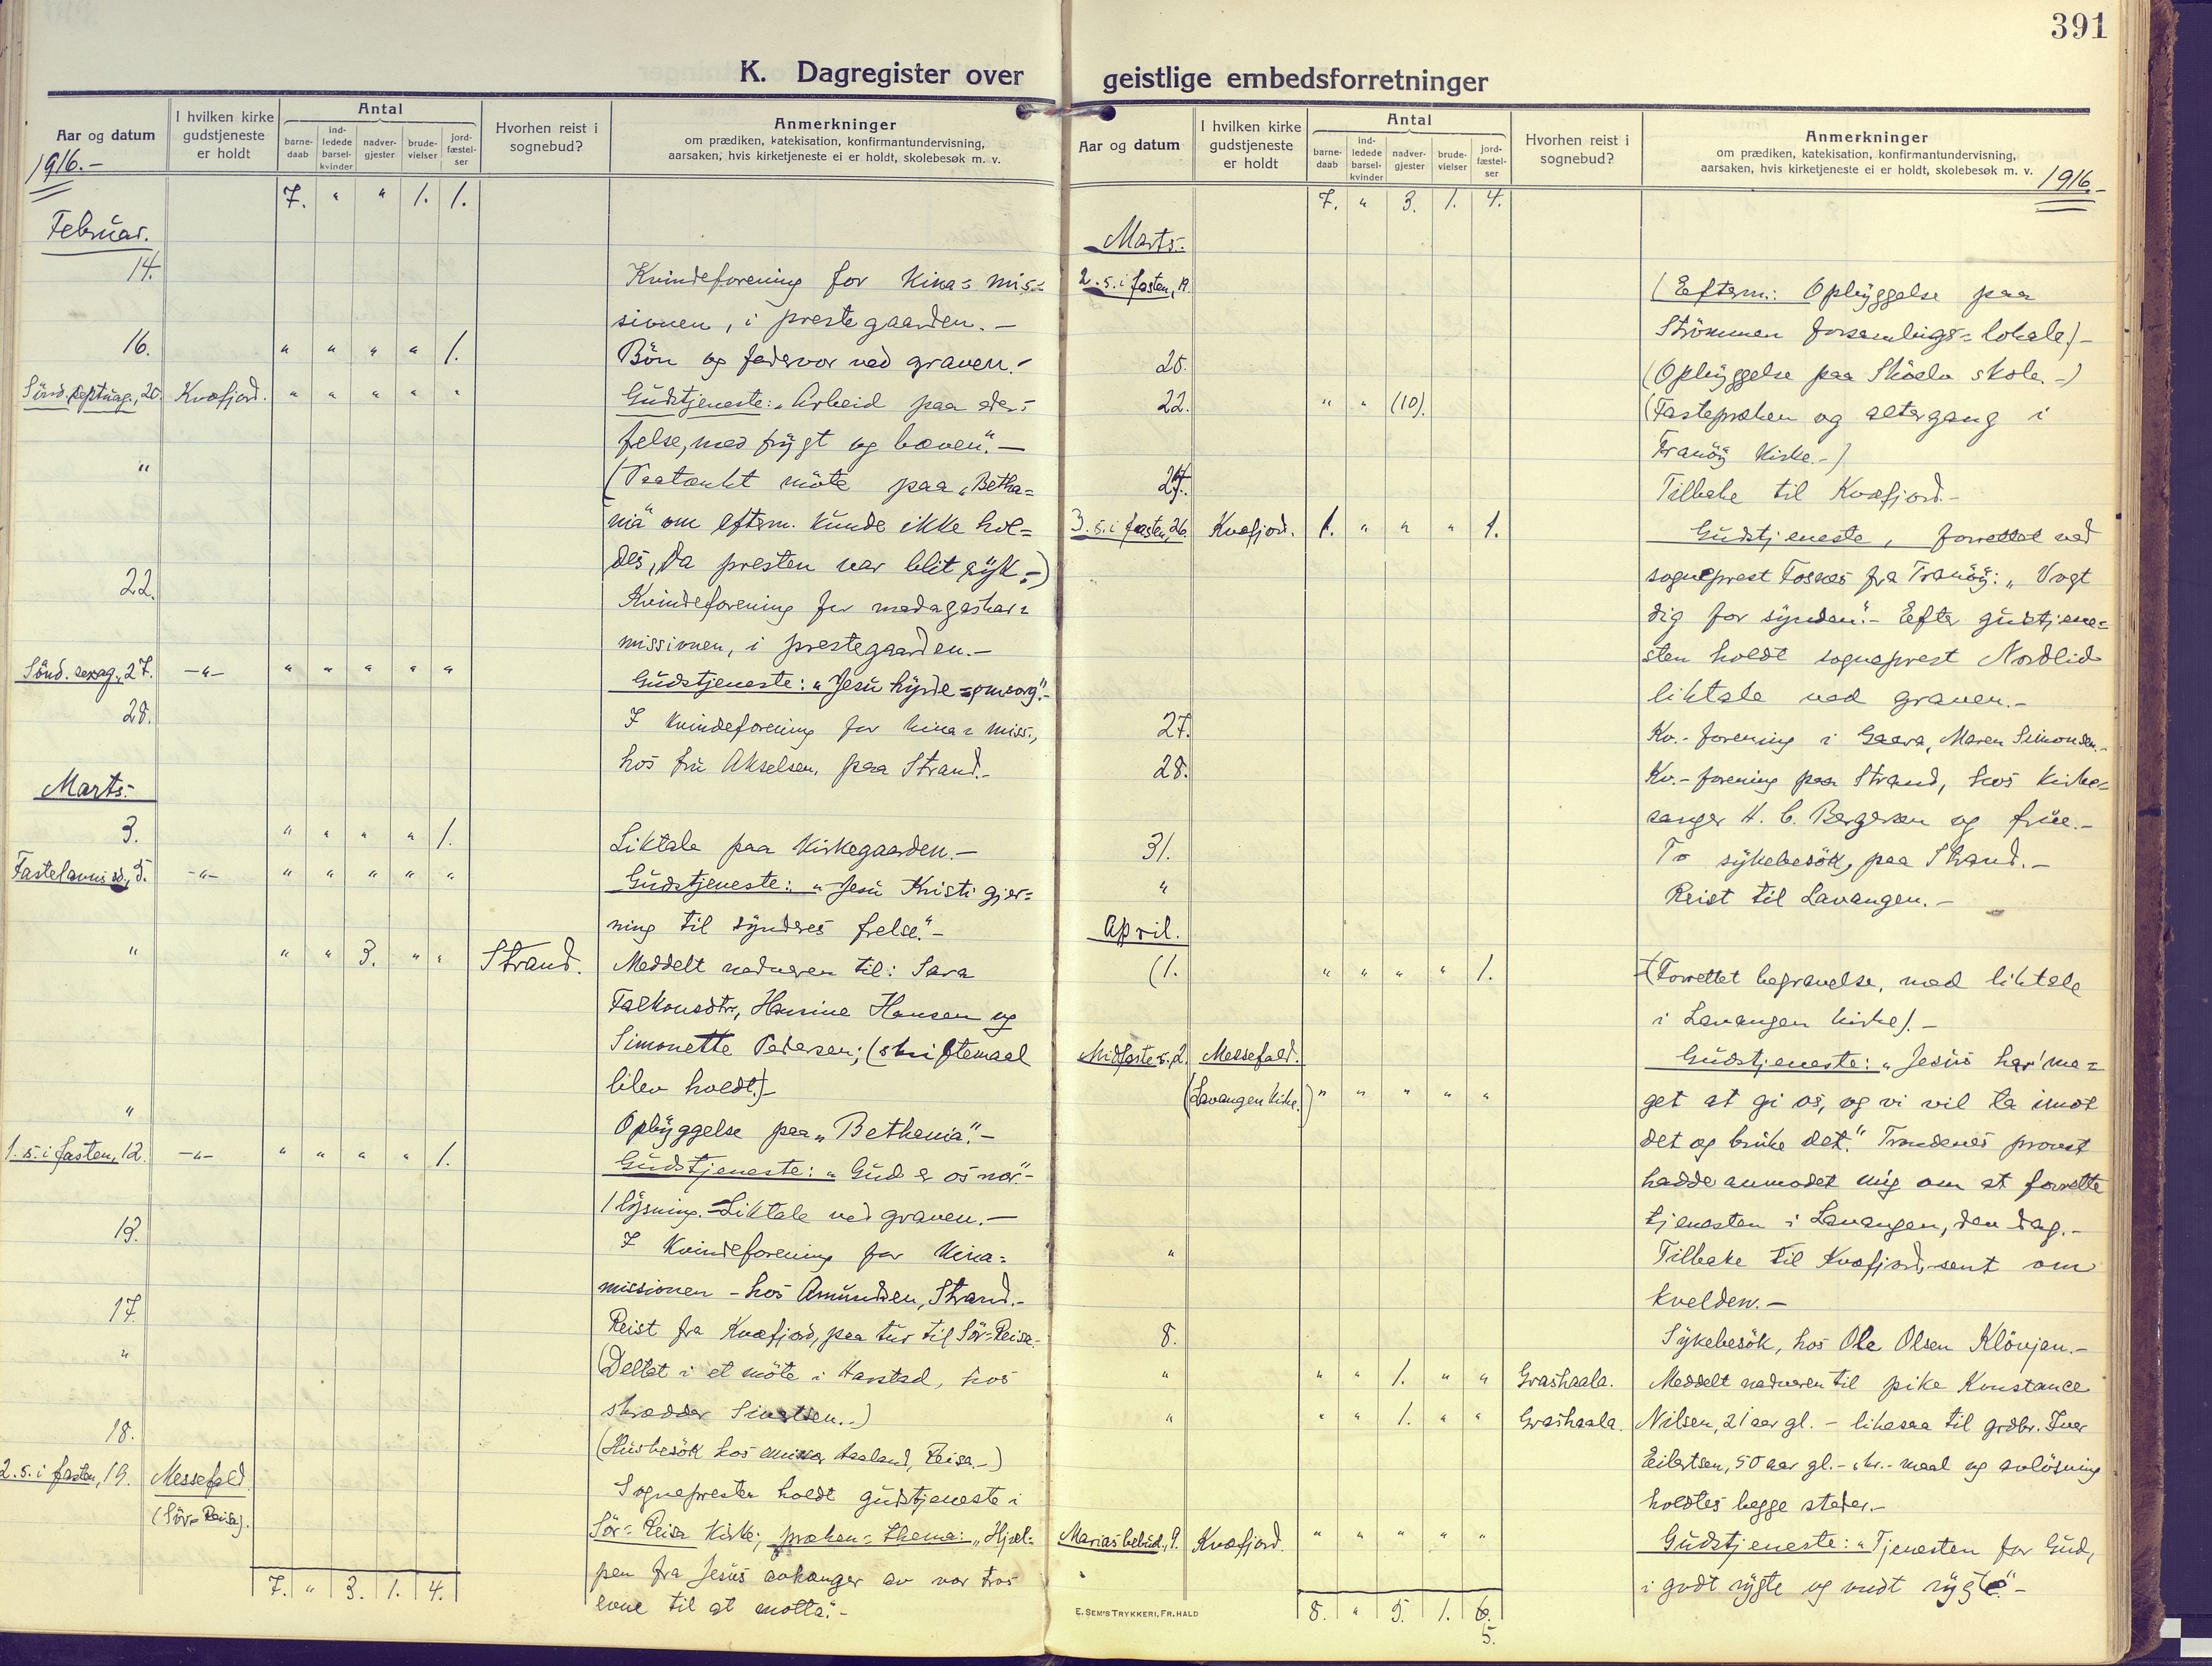 391
K. Dagregister over geistlige embedsforretninger
Aar og datum
I hvilken kirke gudstjeneste er holdt
Antal
barne-daab
ind-ledede barsel-kvinder
nadver-gjester
brude-vielser
jord-fæstel-ser
Hvorhen reist i sognebud?
Anmerkninger
om prædiken, katekisation, konfirmantundervisning,
aarsaken, hvis kirketjeneste ei er holdt, skolebesøk m. v.
1916.-
7. " " 1. 1.
Februar.
14. Kvindeforening for Kina= mis=
sionen, i prestegaarden. -
16. " " " " 1. Bön og fadervor ved graven. -
Sönd. septuag., 20. Kvæfjord. " " " " " Gudstjeneste: „Arbeid paa eders
felse, med frygt og bæven". -
" (Paatænkt möte paa „Betha=
nia" om efterm. kunde ikke hol=
des, da presten var blit syk. -)
22. Kvindeforening for madagaskar=
missionen, i prestegaarden. -
Sönd. sexag., 27. -"- " " " " " Gudstjeneste: „Jesu hyrde=omsorg". -
28. I kvindeforening for kina= miss.,
hos fru Akselsen, paa Strand. -
Marts.-
3. " " " " 1. Liktale paa kirkegaarden. -
Fastelavns sd., 5. -"- " " " " " Gudstjeneste: „Jesu Kristi gjer=
ning til synderes frelse". -
" " " 3. " " Strand. Meddelt nadveren til: Sara
Falkonsdtr., Hansine Hansen og
Simonette Pedersen; (skriftemaal
blev holdt.) -
" Opbyggelse paa „Bethania". -
1. s. i fasten, 12. -"- " " " " 1. Gudstjeneste: „Gud er os nær" -
1 lysning. - Liktale ved graven. -
13. I Kvindeforening for Kina=
missionen - hos Amundsen, Strand. -
17. Reist fra Kvæfjord, paa tur til Sör=Reisa. -
" (Deltat i et möte i Harstad, hos
skrædder Sivertsen. -)
18. (Husbesök hos Aaland, Reisa. -)
2. s. i fasten, 19. Messefald
(Sör=Reisa). Sognepresten holdt gudstjeneste i
Sör=Reisa kirke; præken=thema: „Hjæl=
pen fra Jesus avhænger av vor tros
evne til at motta". -
7. " 3. 1. 4.
Aar og datum
I hvilken kirke gudstjeneste er holdt
Antal
barne-daab
ind-ledede barsel-kvinder
nadver-gjester
brude-vielser
jord-fæstel-ser
Hvorhen reist i sognebud?
Anmerkninger
om prædiken, katekisation, konfirmantundervisning,
aarsaken, hvis kirketjeneste ei er holdt, skolebesøk m. v.
1916.-
7. " 3. 1. 4.
Marts.-
2. s. i fasten, 19. (Efterm.: Opbyggelse paa
Strömmen forsamlings=lokale.) -
20. (Opbyggelse paa skole. -)
22. " " (10). (Fastepræken og altergang i
Tranöy kirke. -)
24. Tilbake til Kvæfjord. -
3. s. i fasten, 26. Kvæfjord. 1. " " " 1. Gudstjeneste, forrettet ved
sogneprest Fosnes fra Tranöy: „Vogt
dig for synden". - Efter gudstjene=
sten holdt sogneprest Nordlid
liktale ved graven. -
27. Kv.- forening i Gaara, Maren Simonsen. -
28. Kv.- forening paa Strand, hos kirke=
sanger H. C. Bergersen og frue. -
31. To sykebesök, paa Strand. -
" Reist til Lavangen. -
April.
(1. " " " " 1. (Forrettet begravelse, med liktale
i Lavangen kirke). -
Midfaste s., 2. Messefald.
(Lavangen kirke.) " " " " " Gudstjeneste: „Jesus har me=
get at gi os, og vi vil ta imot
det og bruke det." Trondenes provst
hadde anmodet mig om at forrette
tjenesten i Lavangen, den dag. -
" Tilbake til Kvæfjord, sent om
kvelden. -
8. Sykebesök, hos Ole Olsen Klövjan. -
" " " 1. " " Grashaala. Meddelt nadveren til pike Konstance
" " " 1. " " Grashaala. Nilsen, 21 aar gl. - likesaa til grdbr. Iver
Eilertsen, 50 aar gl. - skr.- maal og avlösning
holdtes begge steder. -
Marias bebud., 9. Kvæfjord. " " " " " Gudstjeneste: „Tjenesten for Gud,
i godt rygte og ondt rygte". -
8. " 5. 1. 6.
5.
E. SEM'S TRYKKERI, FR.HALD